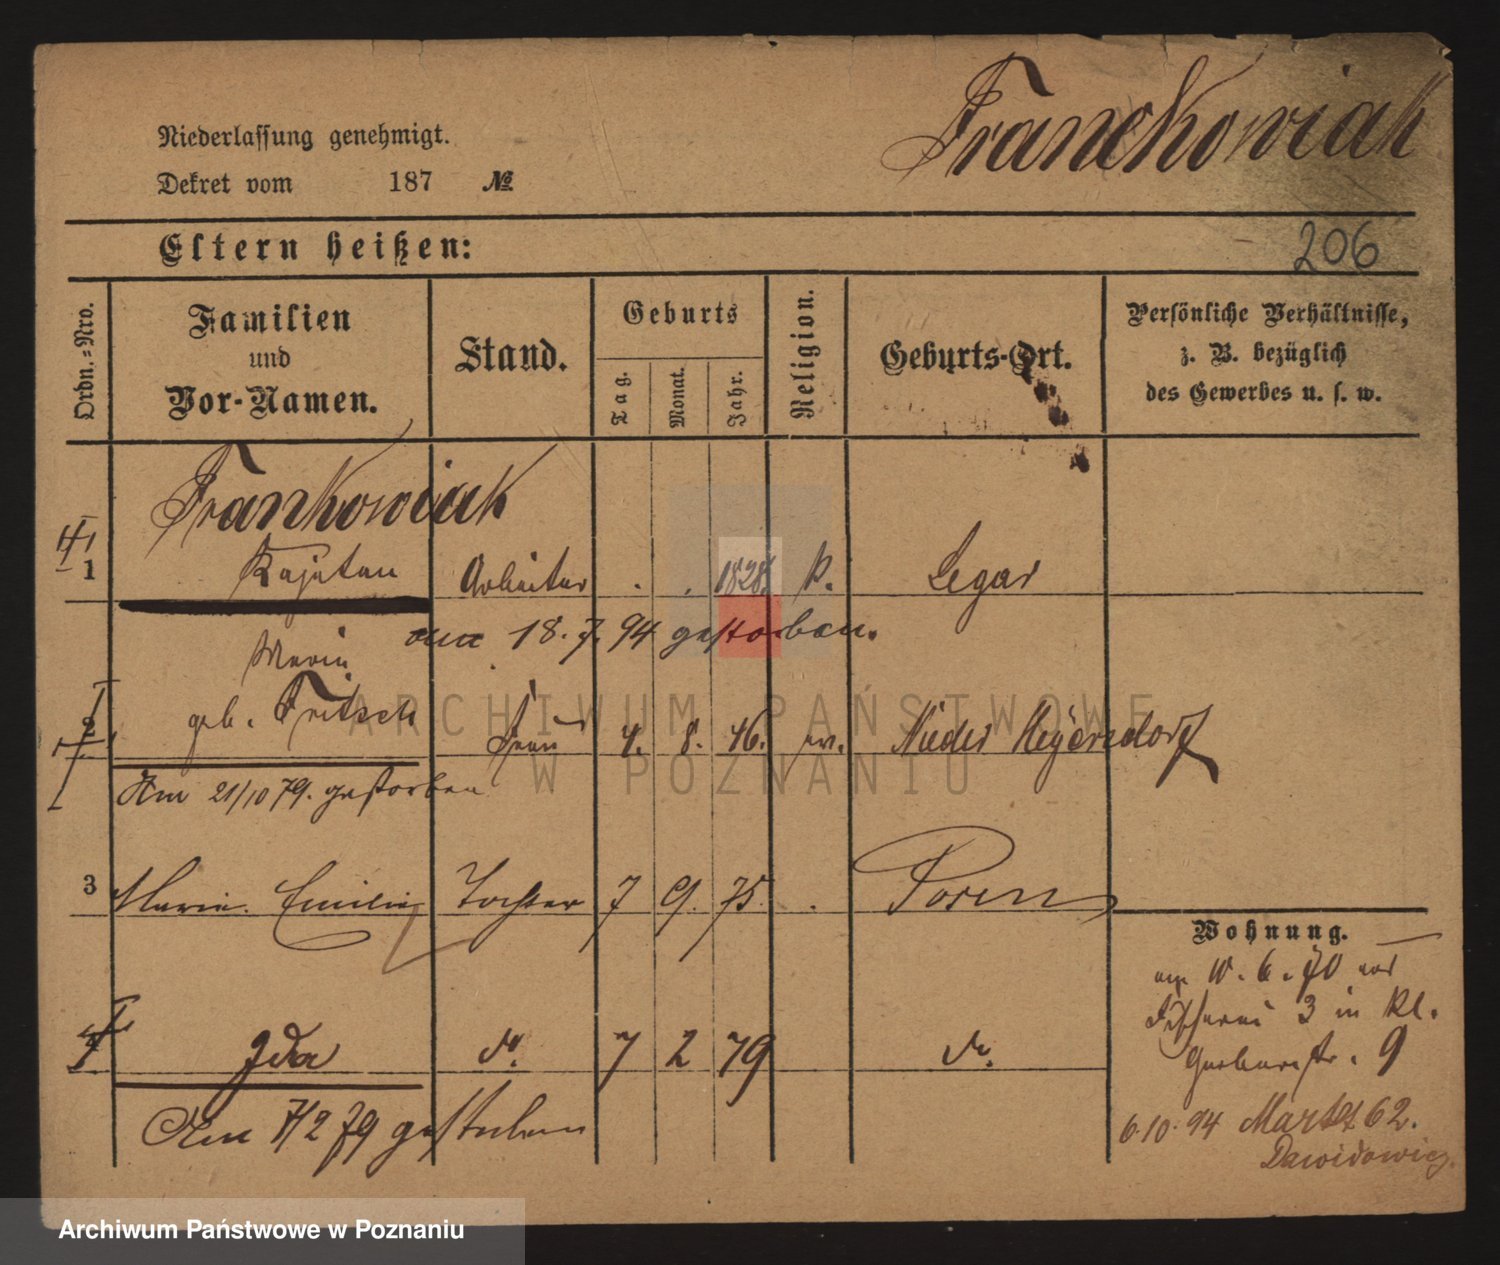 Franckowiak
Niederlassung genehmigt.
Dekret vom 187 №
Eltern heißen:
206
Ordn.=Nro.
Familien
und
Vor-Namen.
Stand.
Geburts
Tag.
Monat.
Jahr.
Religion.
Geburts-Ort.
Persönliche Verhältnisse,
z. B. bezüglich
des Gewerbes u. s. w.
Frankowiak
1 Kajetan Arbeiter . . 1828. k. Legar
am 18.7.94 gestorben.
Marie
2 geb. Fritsch Frau 4. 8. 46. ev. Nieder Heyersdorf
Am 21/10 79. gestorben
3 Marie Emilie Tochter 7 9. 75. . Posen
4 Ida do. 7 2 79 do.
Am 7/2 79 gestorben
Wohnung.
10. 6. 70
Fischerei 3 in Kl.
Gerberstr. 9
6.10.94 62.
Dawidowicz.
ARCHIWUM PAŃSTWOWE
W POZNANIU
Archiwum Państwowe w Poznaniu